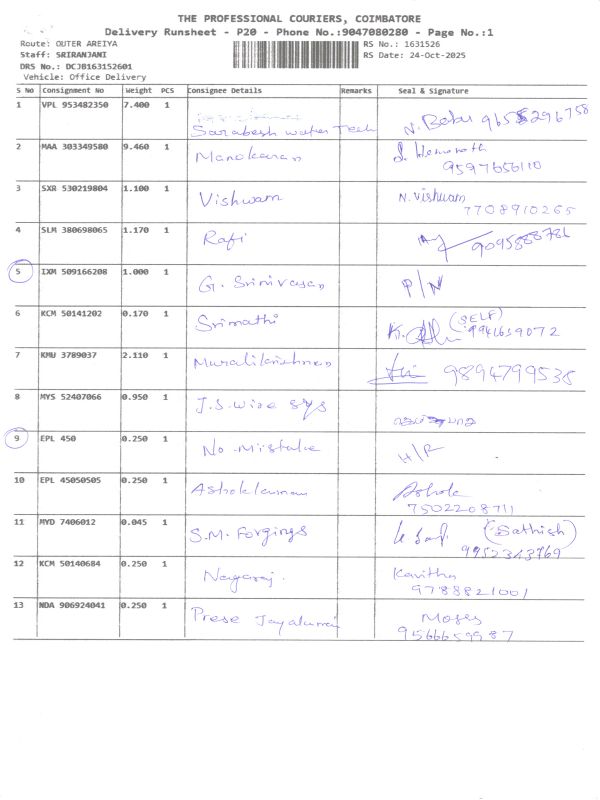 THE PROFESSIONAL COURIERS, COIMBATORE
Delivery Runsheet - P20 - Phone No.:9047080280 - Page No.:1
Route: OUTER AREIYA RS No.: 1631526
Staff: SRIRANJANI RS Date: 24-Oct-2025
DRS No.: DCJB163152601
Vehicle: Office Delivery
S No Consignment No Weight PCS Consignee Details Remarks Seal & Signature
1 VPL 953482350 7.400 1 Sarabesh water Tech N. Babu
2 MAA 303349580 9.460 1 Manokaran 9597656110
3 SXR 530219804 1.100 1 Vishwam N. Vishwam
7708910265
4 SLM 380698065 1.170 1 Rafi
5 IXM 509166208 1.000 1 G. Srinivasan P/N
6 KCM 50141202 0.170 1 Srimathi (SELF)
9941659072
7 KMU 3789037 2.110 1 Muralikrishnan 9894799538
8 MYS 52407066 0.950 1 J.S. wire sys
9 EPL 450 0.250 1 No Mistake
10 EPL 45050505 0.250 1 Ashokkumar Ashok
7502208711
11 MYD 7406012 0.045 1 S.M. Forgings (Sathish)
9952343769
12 KCM 50140684 0.250 1 Nagaraj. Kavitha
9788821001
13 NDA 906924041 0.250 1 Moses
9566659987